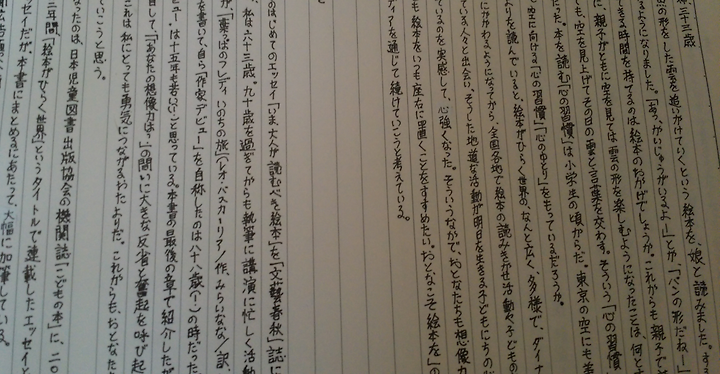 三十三歳
の形をした雲を追いかけていく、という絵本を、娘と読みました。する
るようになりました。「あっ、かいじゅうがいるよー」とか、「パンの形だね!」
できる時間を持てるのは絵本のおかげでしょうか。これからも親子で
に、親子がともに空を見ては雲の形を楽しむようになったことは、何と
ても、空を見上げてその日の雲と言葉を交わす。そういう「心の習慣
だった。本を読む「心の習慣」は小学生の頃からだ。東京の空にも
空に向ける「心の習慣」「心のゆとり」をもっているだろうか。
よりを読んでいると、絵本がひらく世界の、なんと広く、多様で、ダイナ
にかかわるようになってから、全国各地で絵本の読みきかせ活動や子どもの
ている人々と出会い、そうした地道な活動が明日を生きる子どもたちの
ているのを実感して、心強くなった。そういうなかで、おとなたちも想像力
も絵本をいつも座右に置くことをすすめたい。「おとなこそ絵本を」の
ディアを通じて続けていこうと考えている。
と
のはじめてのエッセイ「いま、大人が読むべき絵本」を「文藝春秋」誌に
、私は六十三歳。九十歳を過ぎてからも執筆に講演に忙しく活動
が、「葉っぱのフレディ いのちの旅」(レオ・バスカーリア/作、みらいなな/訳、
を書いて、自ら「作家デビュー」を自称したのは八十八歳(!)の時だった
ビューは十五年も若いぞと思っている。本書の最後の章で紹介したが
目して「あなたの想像力は?」の問いに大きな反省と奮起を呼び起
これは私にとっても勇気につながるおたよりだ。これからも、おとなた
ていこうと思う。
なったのは、日本児童図書出版協会の機関誌「こどもの本」に、二〇
年間、「絵本がひらく世界」というタイトルで連載したエッセイ
セイだが、本書にまとめるにあたって、大幅に加筆している。